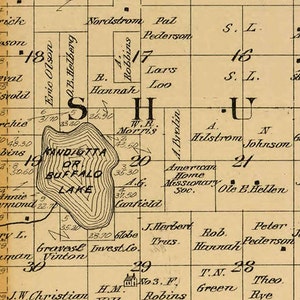 Nordstrom
Pal
Pederson
S. L.
18
17
16
Eric Olson
O.B. Hedberg
A. Robins
Lars
Loo
S. L.
R.
Hannah
S H U
W.R.
Morris
A. Brolin
A.
Hilstrom
N
Johnson
KANDIOTTA
OR
BUFFALO
LAKE
20
21
American
Home
Missionary
Soc.
Ole B. Hellen
A.G.
Canfield
Graves &
Vinton
Globe
Invest. Co.
J. Herbert
Trus.
Rob.
Hannah
Peter
Pederson
30
29
28
H. M.
No 3. F.
Robins
T. N.
Green
Theo
Rye
J. W. Christian